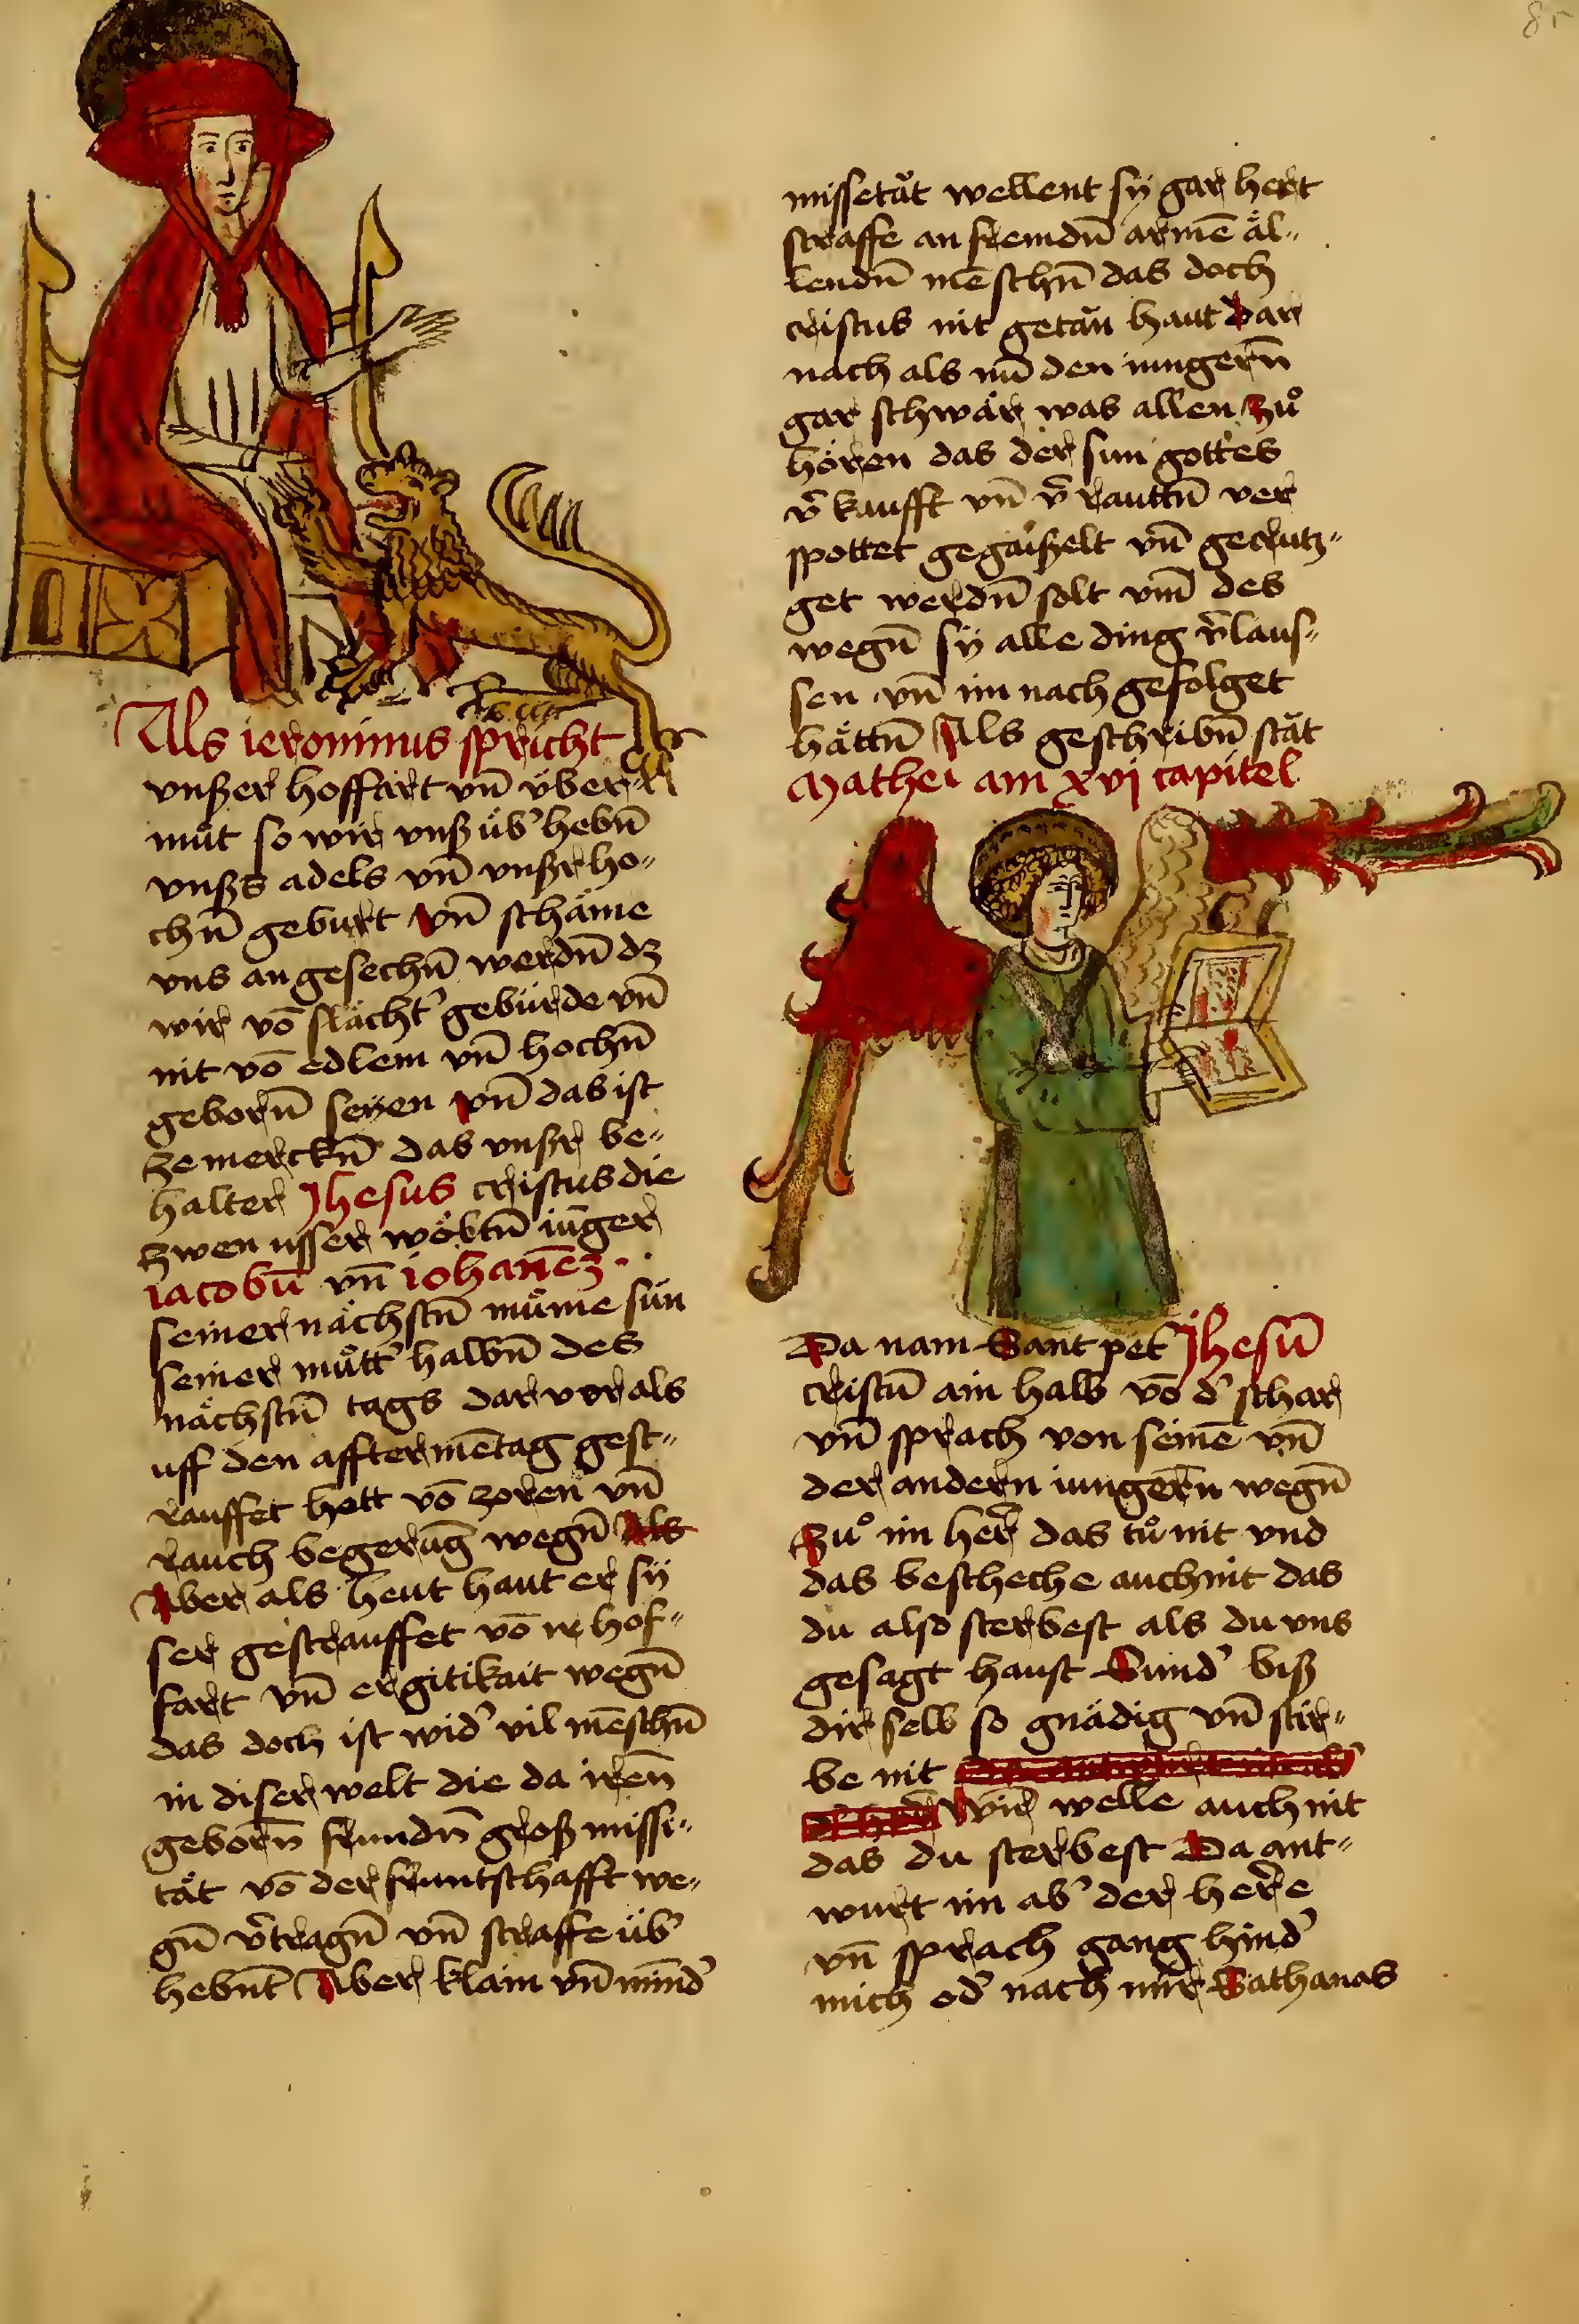 8r
Als ieronimus spricht
vnßer hoffart vn̄ v̈ber
mu̇t so wir vnß üb' hebn̄
vnßs adels vn̄ vnßr ho„
chn̄ geburt vn̄ schäme
vns an gesechn̄ werdn̄ dz
wir vō slächt' gebürde vn̄
nit vō edlem vn̄ hochn̄
geborn̄ seyen vn̄ das ist
ze merckn̄ das vnßr be„
halter Jhesus cristus die
zwen usser wöltn̄ iūger
iacobū vn̄ iohanēz
seiner nächstn̄ mu̇me sün
seiner mu̇tt' halbn̄ des
nächstn̄ tags dar vor als
uff den afftermētag gest„
rauffet hett vō zoren vn̄
rauch begerūg wegn̄ Als
Aber als heut haut er sÿ
ser gestrauffet vō ir hof„
fart vn̄ ergitikait wegn̄
das doch ist wid' vil mēschn̄
in diser welt die da iren̄
geborn̄ frundn̄ groß misse„
tät vō der fruntschafft we„
gn̄ v̄tragn̄ vn̄ straffe üb'
hebnt̄ Aber klain vn̄ mind'
missetät wellent sÿ gar hert
straffe an fremdn̄ armē äl„
lendn̄ mēschn̄ das doch
cristus nit getän haut Dar
nach als nū den iungern̄
gar schwär was allen zů
hören das der sun gottes
v̄ kaufft vn̄ v̄ rauttn̄ ver
spottet gegaißelt vn̄ gecrutz„
get werdn̄ solt vm̄ des
wegn̄ sÿ alle ding v̄laus„
sen vn̄ im nach gefolget
hättn̄ Als geschribn̄ stät
Mathei am xvj capitel
Da nam Sant pet' Jhesū
cristū ain halb vō d' schar
vn̄ sprach von seinē vn̄
der andern iungern̄ wegn̄
Zů im her̄ das tů nit vnd
das bescheche auch nit das
du also sterbest als du vns
gesagt haust Sund' biß
dir selb so gnädig vn̄ stir„
be nit
Wir welle auch nit
das du sterbest Da ant„
wurt im ab' der here
vn̄ sprach gang hind'
mich od' nach mir Sathanas